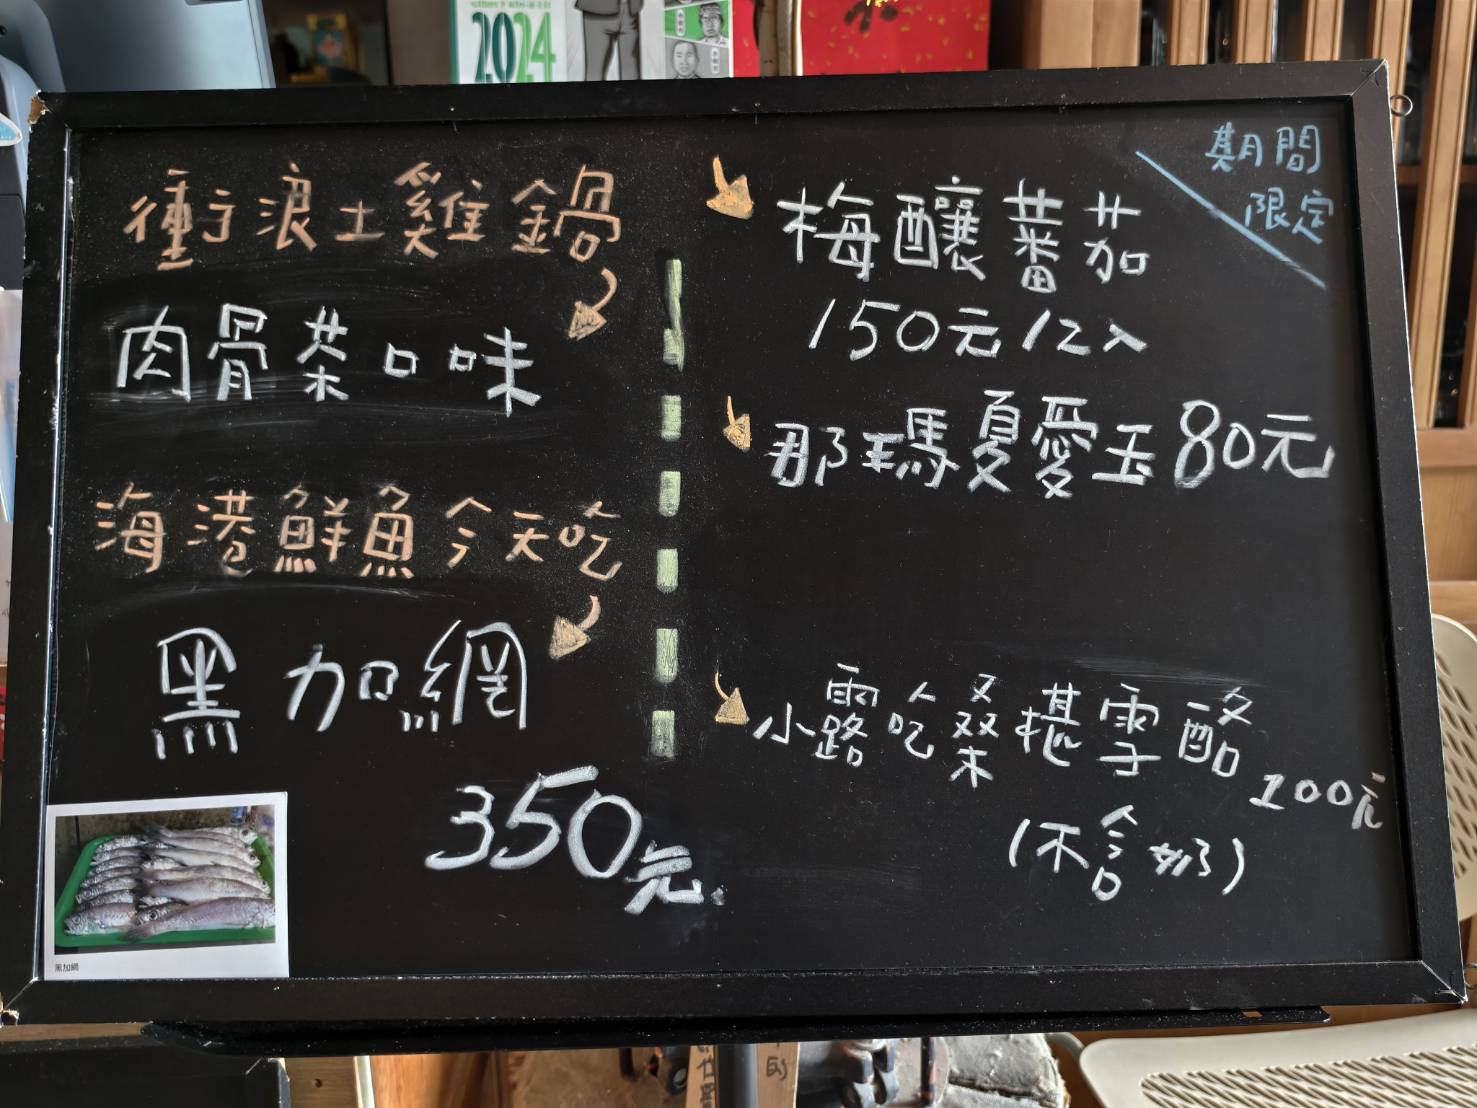 2024
衝浪土雞鍋
肉骨茶口味
海港鮮魚今天吃
黑加網
350元
黑加網
期間
限定
梅釀蕃茄
150元/12入
那瑪夏愛玉80元
小露吃桑椹雪酪
100元
(不含奶)